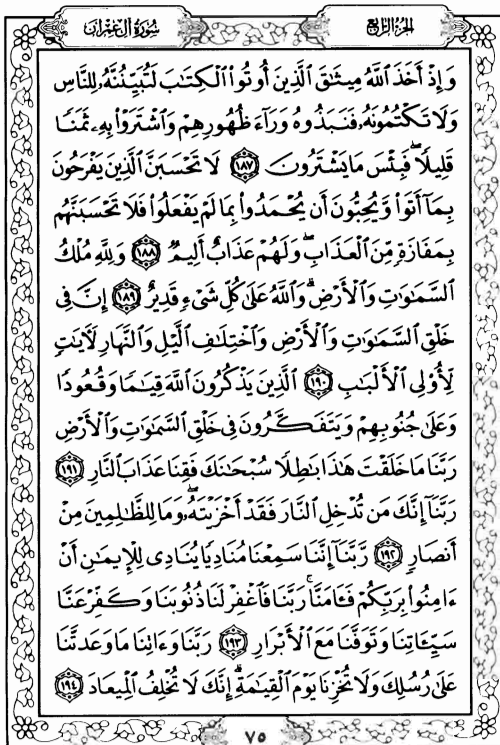 سُورَةُ آلِ عِمْرَان
الجُزْءُ الرَّابِعُ
وَإِذْ أَخَذَ ٱللَّهُ مِيثَٰقَ ٱلَّذِينَ أُوتُوا۟ ٱلْكِتَٰبَ لَتُبَيِّنُنَّهُۥ لِلنَّاسِ
وَلَا تَكْتُمُونَهُۥ فَنَبَذُوهُ وَرَآءَ ظُهُورِهِمْ وَٱشْتَرَوْا۟ بِهِۦ ثَمَنًا
قَلِيلًا ۖ فَبِئْسَ مَا يَشْتَرُونَ ١٨٧ لَا تَحْسَبَنَّ ٱلَّذِينَ يَفْرَحُونَ
بِمَآ أَتَوا۟ وَّيُحِبُّونَ أَن يُحْمَدُوا۟ بِمَا لَمْ يَفْعَلُوا۟ فَلَا تَحْسَبَنَّهُم
بِمَفَازَةٍ مِّنَ ٱلْعَذَابِ ۖ وَلَهُمْ عَذَابٌ أَلِيمٌ ١٨٨ وَلِلَّهِ مُلْكُ
ٱلسَّمَٰوَٰتِ وَٱلْأَرْضِ ۗ وَٱللَّهُ عَلَىٰ كُلِّ شَىْءٍ قَدِيرٌ ١٨٩ إِنَّ فِى
خَلْقِ ٱلسَّمَٰوَٰتِ وَٱلْأَرْضِ وَٱخْتِلَٰفِ ٱلَّيْلِ وَٱلنَّهَارِ لَءَايَٰتٍ
لِّأُو۟لِى ٱلْأَلْبَٰبِ ١٩٠ ٱلَّذِينَ يَذْكُرُونَ ٱللَّهَ قِيَٰمًا وَقُعُودًا
وَعَلَىٰ جُنُوبِهِمْ وَيَتَفَكَّرُونَ فِى خَلْقِ ٱلسَّمَٰوَٰتِ وَٱلْأَرْضِ
رَبَّنَا مَا خَلَقْتَ هَٰذَا بَٰطِلًا سُبْحَٰنَكَ فَقِنَا عَذَابَ ٱلنَّارِ ١٩١
رَبَّنَآ إِنَّكَ مَن تُدْخِلِ ٱلنَّارَ فَقَدْ أَخْزَيْتَهُۥ ۖ وَمَا لِلظَّٰلِمِينَ مِنْ
أَنصَارٍ ١٩٢ رَّبَّنَآ إِنَّنَا سَمِعْنَا مُنَادِيًا يُنَادِى لِلْإِيمَٰنِ أَنْ
ءَامِنُوا۟ بِرَبِّكُمْ فَـَٔامَنَّا ۚ رَبَّنَا فَٱغْفِرْ لَنَا ذُنُوبَنَا وَكَفِّرْ عَنَّا
سَيِّـَٔاتِنَا وَتَوَفَّنَا مَعَ ٱلْأَبْرَارِ ١٩٣ رَبَّنَا وَءَاتِنَا مَا وَعَدتَّنَا
عَلَىٰ رُسُلِكَ وَلَا تُخْزِنَا يَوْمَ ٱلْقِيَٰمَةِ ۗ إِنَّكَ لَا تُخْلِفُ ٱلْمِيعَادَ ١٩٤
٧٥